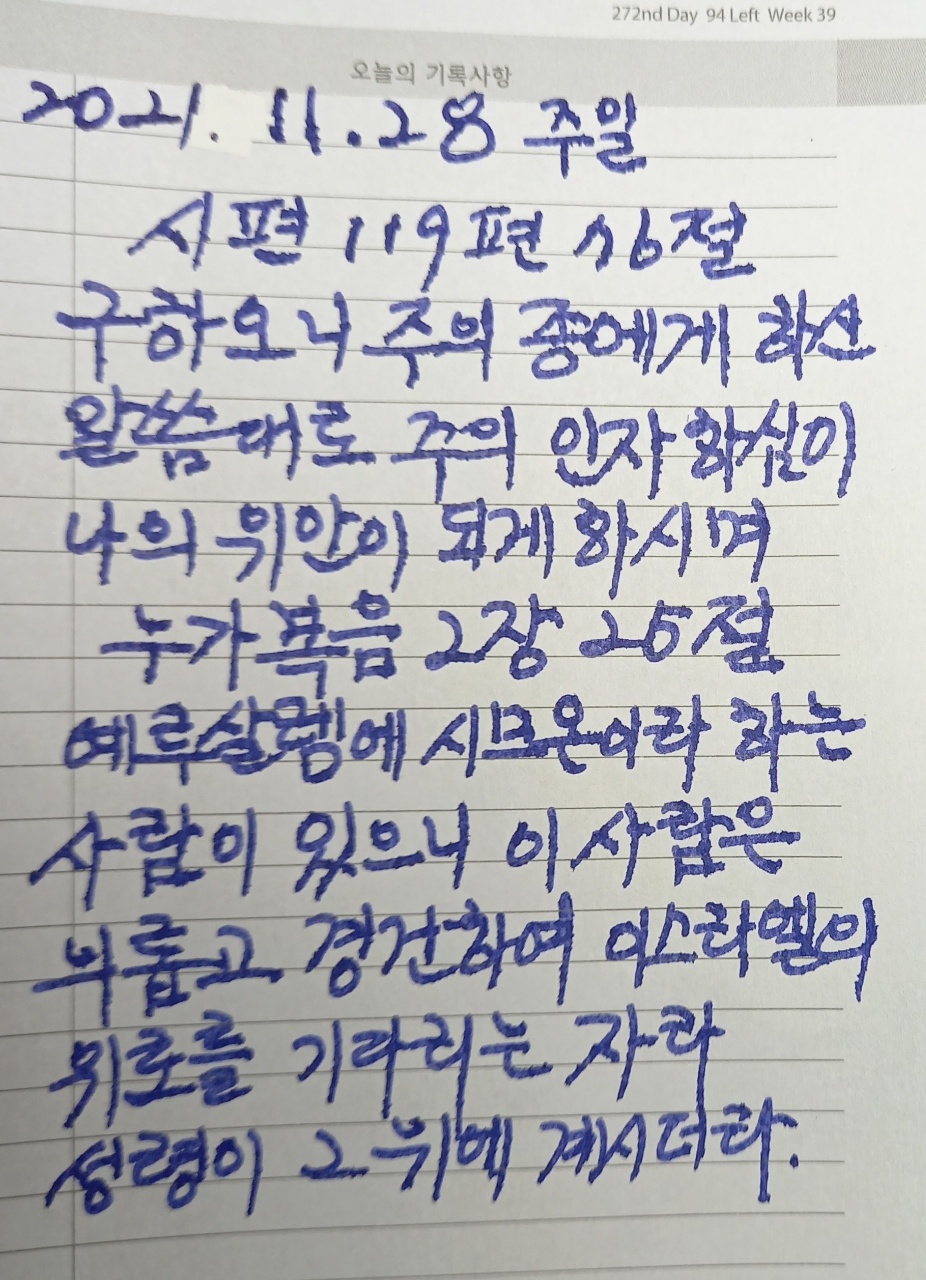 272nd Day 94 Left Week 39
오늘의 기록사항
2021. 11. 28 주일
시편 119편 76절
구하오니 주의 종에게 하신
말씀대로 주의 인자하심이
나의 위안이 되게 하시며
누가복음 2장 25절
예루살렘에 시므온이라 하는
사람이 있으니 이 사람은
의롭고 경건하여 이스라엘의
위로를 기다리는 자라
성령이 그 위에 계시더라.